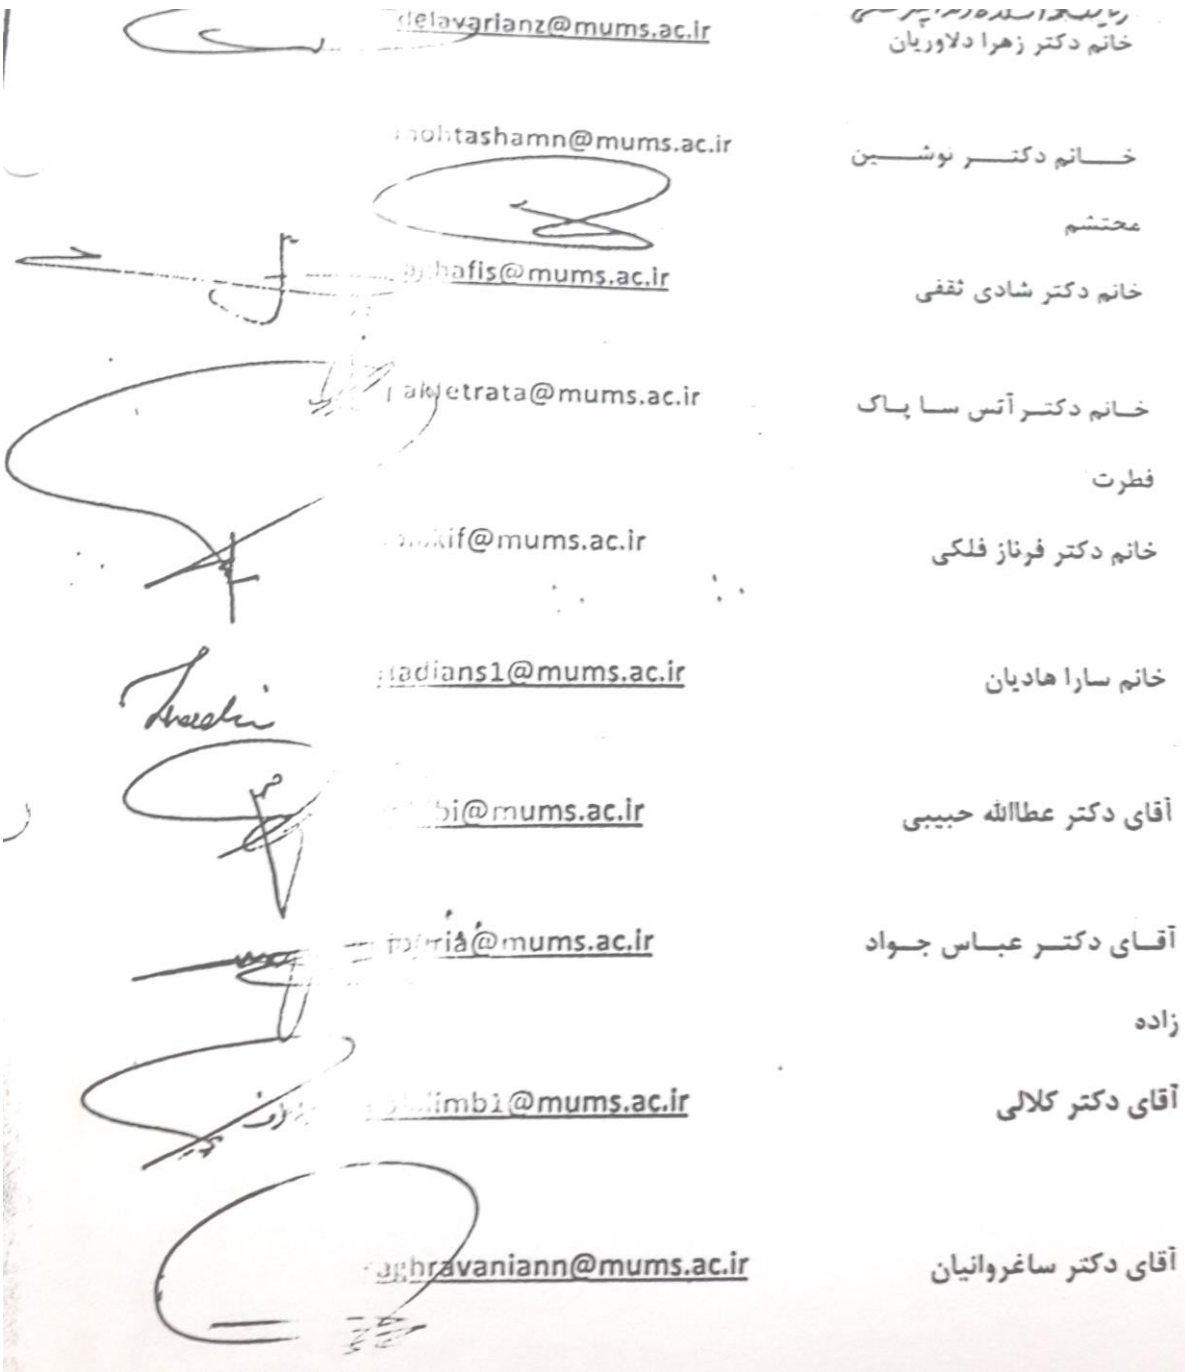 خانم دکتر زهرا دلاوریان delavarianz@mums.ac.ir
خانم دکتر نوشین ohtashamn@mums.ac.ir
محتشم
خانم دکتر شادی ثقفی hafis@mums.ac.ir
خانم دکتر آتس سا پاک akfetrata@mums.ac.ir
فطرت
خانم دکتر فرناز فلکی kif@mums.ac.ir
خانم سارا هادیان hadians1@mums.ac.ir
آقای دکتر عطاالله حبیبی bi@mums.ac.ir
آقای دکتر عباس جواد @mums.ac.ir
زاده
آقای دکتر کلالی limb1@mums.ac.ir
آقای دکتر ساغروانیان aghravaniann@mums.ac.ir